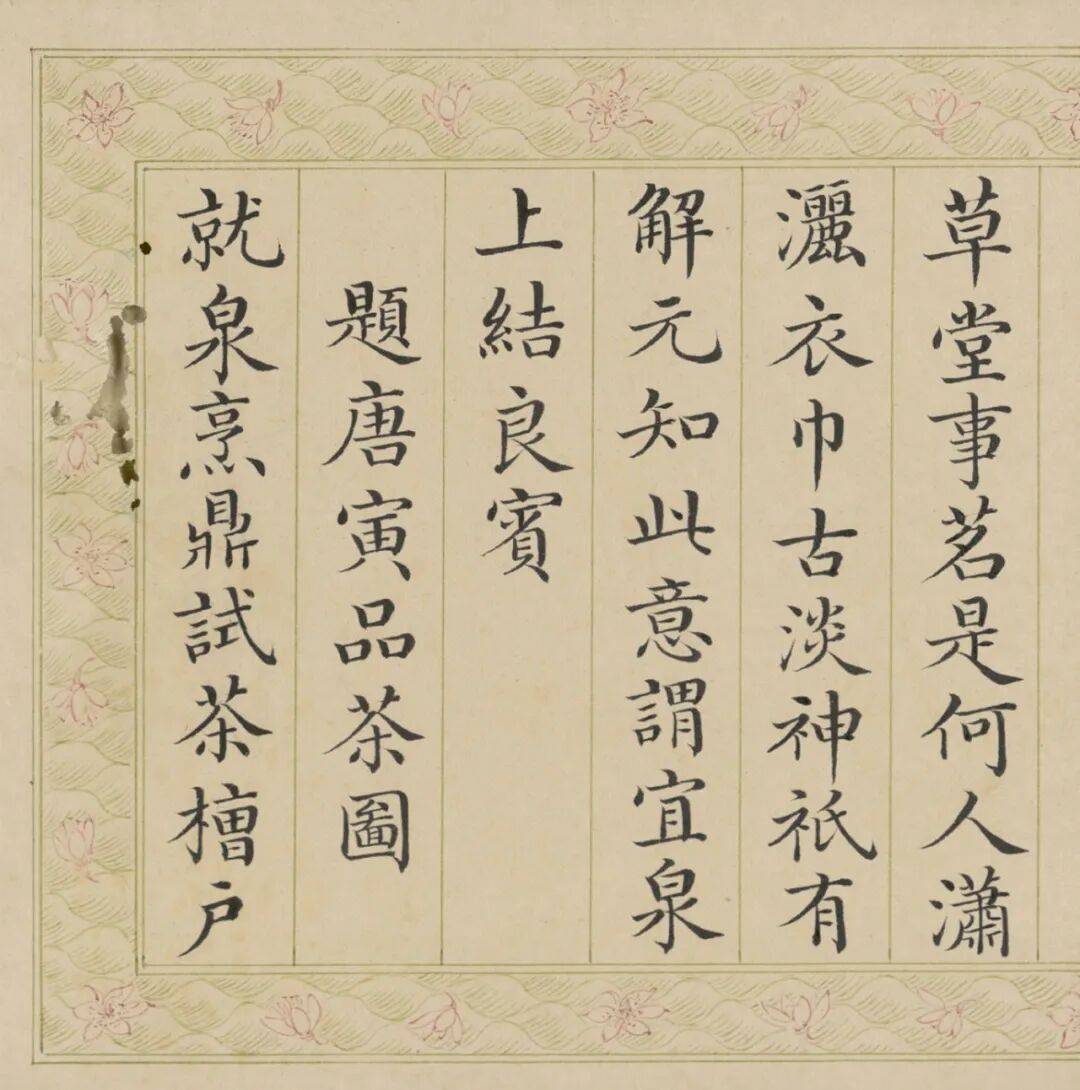 草堂事茗是何人瀟
灑衣巾古淡神祇有
解元知此意謂宜泉
上結良賓
題唐寅品茶圖
就泉烹鼎試茶檜戶